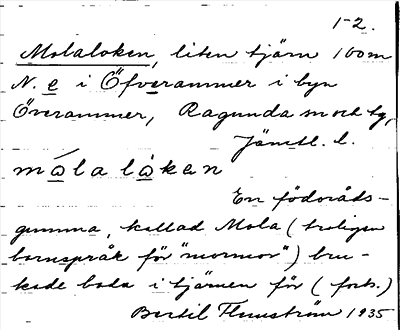 1-2.
Molaloken, liten tjärn 100 m
N. e i Öfverammer i byn
Överammer, Ragunda sn och tg,
Jämtl. l.
mólalòken
En födoråds-
gumma, kallad Mola (troligen
barnspråk för "mormor") bru-
kade bada i tjärnen för (forts.)
Bertil Flemström 1935